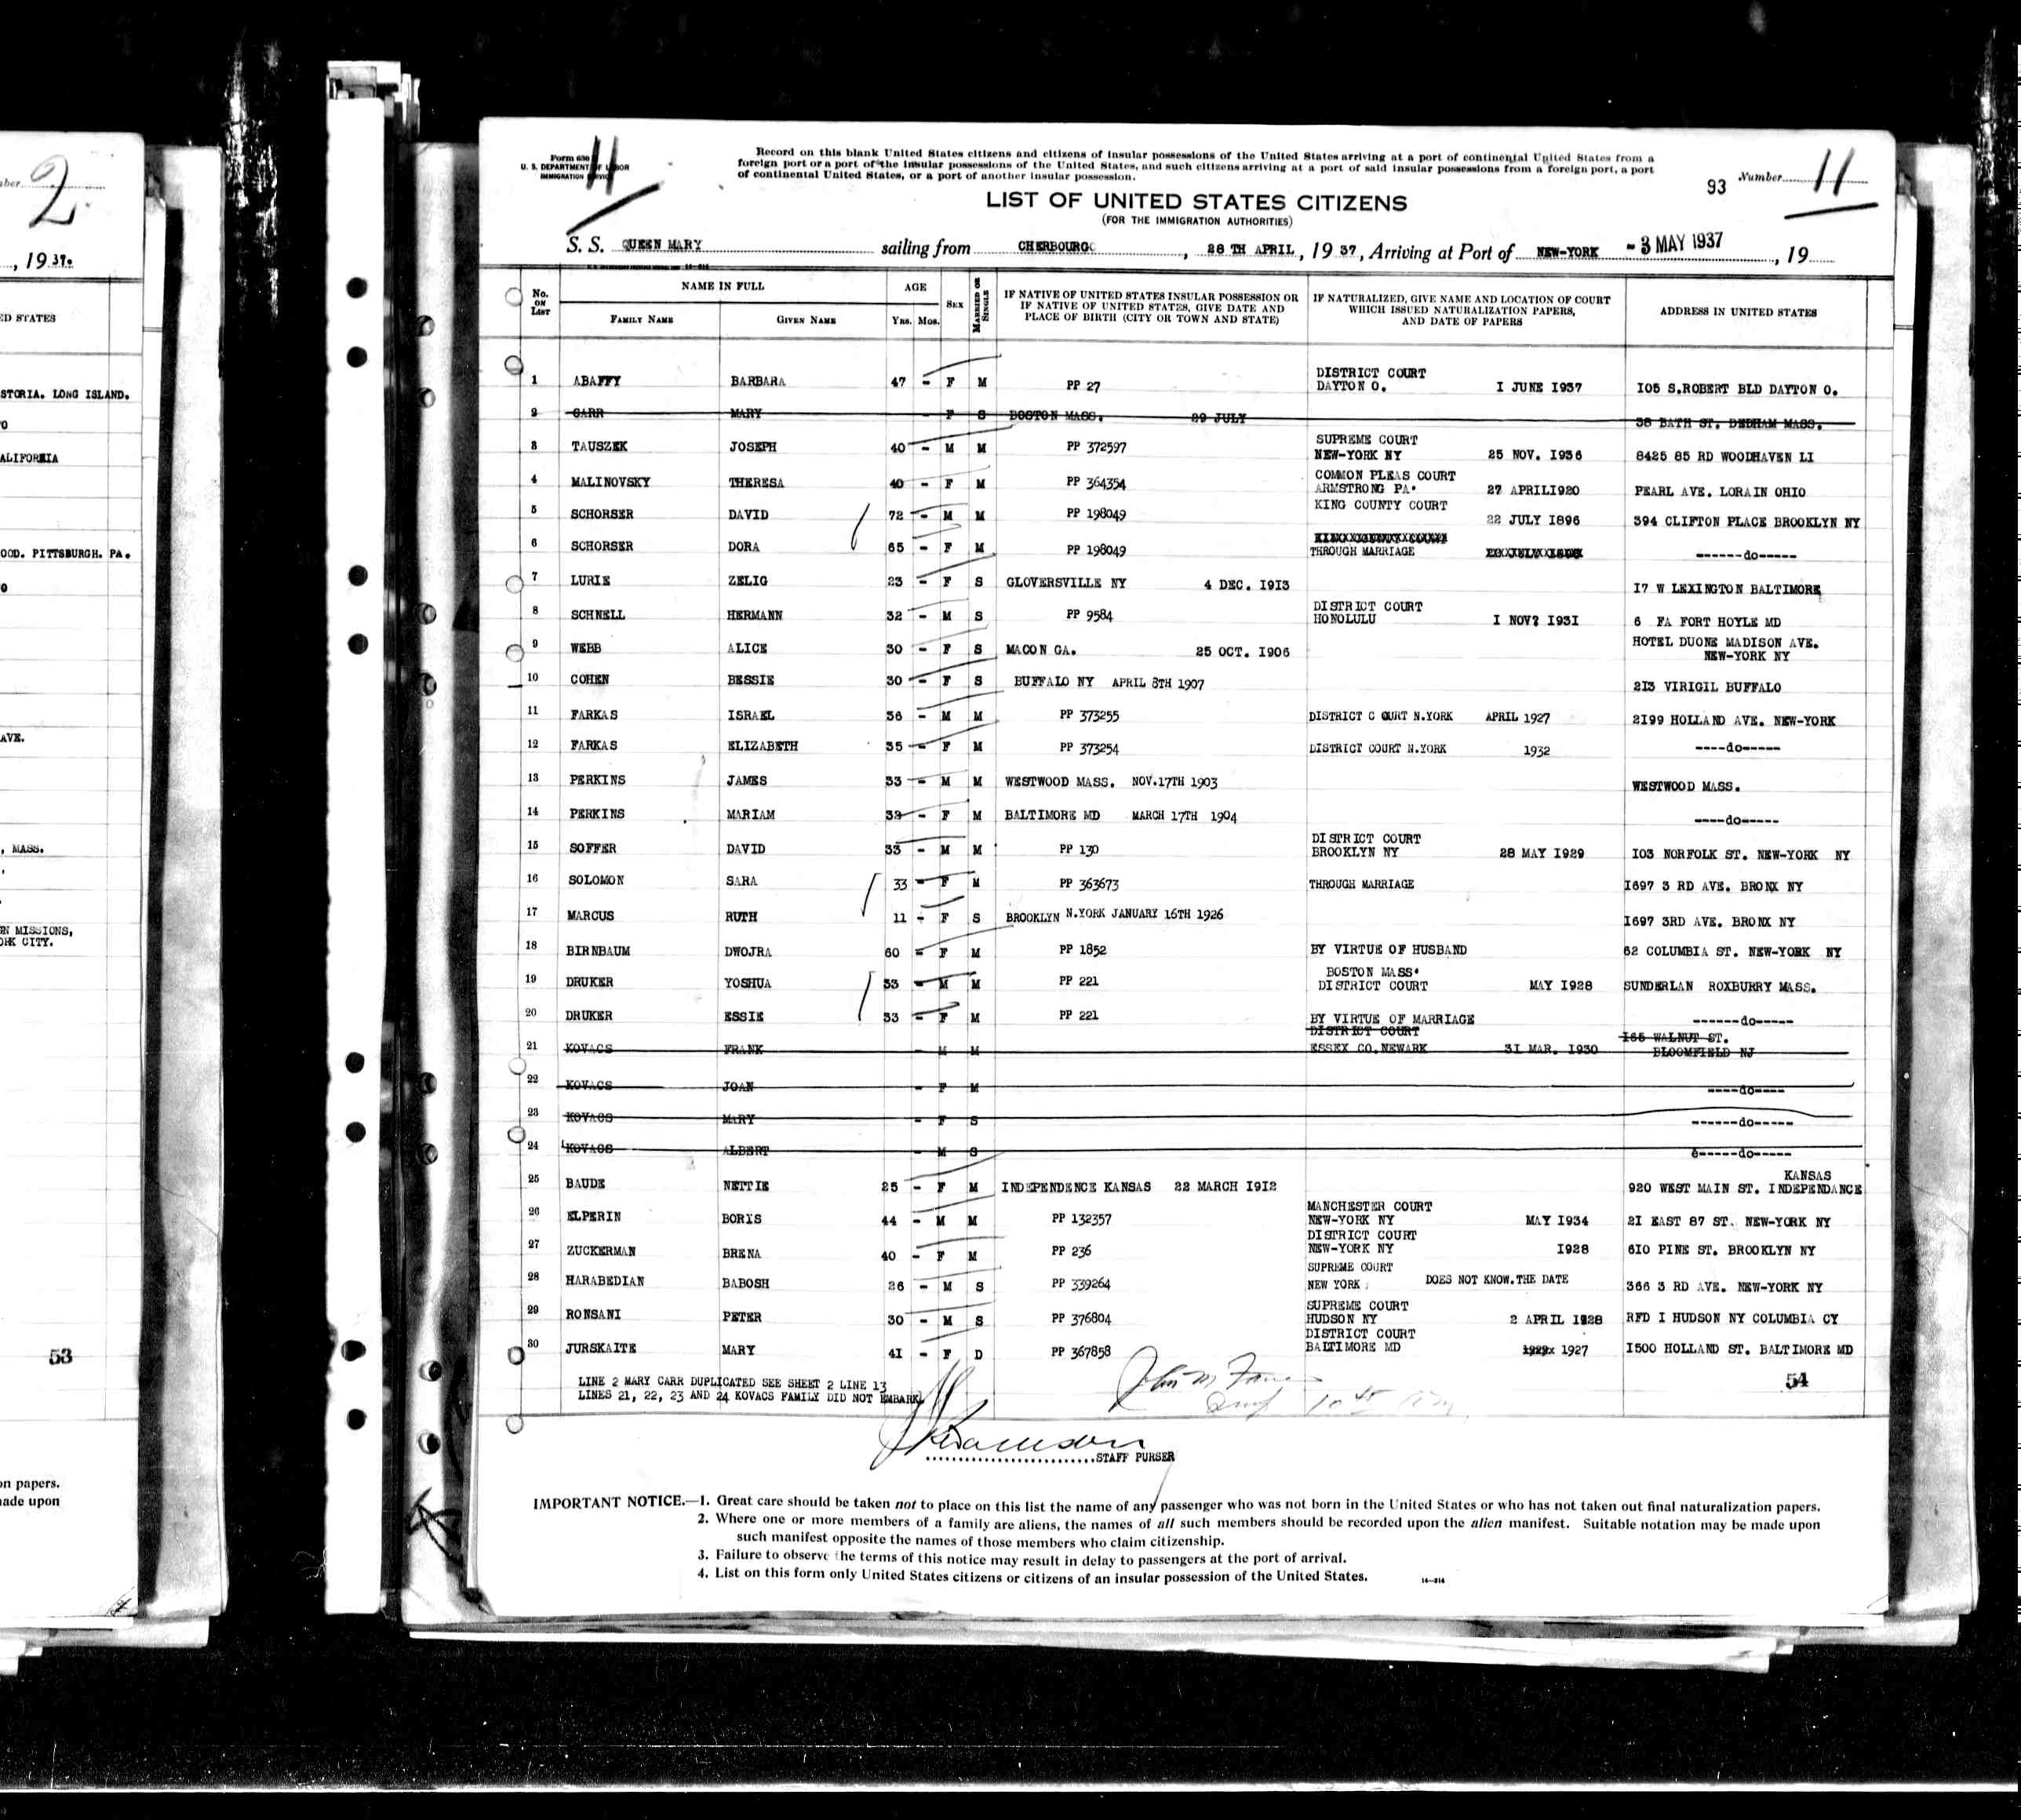 2
19 37.
ED STATES
STORIA. LONG ISLAND.
ALIFORNIA
OOD. PITTSBURGH. PA.
AVE.
, MASS.
EN MISSIONS,
ORK CITY.
53
on papers.
made upon
Form 630
U. S. DEPARTMENT OF LABOR
IMMIGRATION SERVICE
11
Record on this blank United States citizens and citizens of insular possessions of the United States arriving at a port of continental United States from a
foreign port or a port of the insular possessions of the United States, and such citizens arriving at a port of said insular possessions from a foreign port, a port
of continental United States, or a port of another insular possession.
93 Number 11
LIST OF UNITED STATES CITIZENS
(FOR THE IMMIGRATION AUTHORITIES)
S. S. QUEEN MARY sailing from CHERBOURG, 28 TH APRIL, 19 37, Arriving at Port of NEW-YORK - 3 MAY 1937, 19
No. ON LIST NAME IN FULL AGE SEX MARRIED OR SINGLE IF NATIVE OF UNITED STATES INSULAR POSSESSION OR IF NATIVE OF UNITED STATES, GIVE DATE AND PLACE OF BIRTH (CITY OR TOWN AND STATE) IF NATURALIZED, GIVE NAME AND LOCATION OF COURT WHICH ISSUED NATURALIZATION PAPERS, AND DATE OF PAPERS ADDRESS IN UNITED STATES
FAMILY NAME GIVEN NAME YRS. MOS.
1 ABAFFY BARBARA 47 - F M PP 27 DISTRICT COURT DAYTON O. I JUNE I937 I05 S.ROBERT BLD DAYTON O.
2 CARR MARY - F S BOSTON MASS. 29 JULY 38 BATH ST. DEDHAM MASS.
3 TAUSZEK JOSEPH 40 - M M PP 372597 SUPREME COURT NEW-YORK NY 25 NOV. I936 8425 85 RD WOODHAVEN LI
4 MALINOVSKY THERESA 40 - F M PP 364354 COMMON PLEAS COURT ARMSTRONG PA. 27 APRILI920 PEARL AVE. LORAIN OHIO
5 SCHORSER DAVID 72 - M M PP 198049 KING COUNTY COURT 22 JULY I896 394 CLIFTON PLACE BROOKLYN NY
6 SCHORSER DORA 65 - F M PP 198049 THROUGH MARRIAGE ------do-----
7 LURIE ZELIG 23 - F S GLOVERSVILLE NY 4 DEC. I9I3 I7 W LEXINGTON BALTIMORE
8 SCHNELL HERMANN 32 - M S PP 9584 DISTRICT COURT HONOLULU I NOV? I93I 6 FA FORT HOYLE MD
9 WEBB ALICE 30 - F S MACON GA. 25 OCT. I906 HOTEL DUONE MADISON AVE. NEW-YORK NY
10 COHEN BESSIE 30 - F S BUFFALO NY APRIL 8TH 1907 2I3 VIRIGIL BUFFALO
11 FARKAS ISRAEL 36 - M M PP 373255 DISTRICT C OURT N.YORK APRIL 1927 2I99 HOLLAND AVE. NEW-YORK
12 FARKAS ELIZABETH 35 - F M PP 373254 DISTRICT COURT N.YORK 1932 ----do-----
13 PERKINS JAMES 33 - M M WESTWOOD MASS. NOV.17TH 1903 WESTWOOD MASS.
14 PERKINS MARIAM 33 - F M BALTIMORE MD MARCH 17TH 1904 ----do-----
15 SOFFER DAVID 33 - M M PP 130 DISTRICT COURT BROOKLYN NY 28 MAY I929 I03 NORFOLK ST. NEW-YORK NY
16 SOLOMON SARA 33 - F M PP 363673 THROUGH MARRIAGE I697 3 RD AVE. BRONX NY
17 MARCUS RUTH 11 - F S BROOKLYN N.YORK JANUARY 16TH 1926 I697 3RD AVE. BRONX NY
18 BIRNBAUM DWOJRA 60 - F M PP 1852 BY VIRTUE OF HUSBAND 62 COLUMBIA ST. NEW-YORK NY
19 DRUKER YOSHUA 33 - M M PP 221 BOSTON MASS. DISTRICT COURT MAY I928 SUNDERLAN ROXBURRY MASS.
20 DRUKER ESSIE 33 - F M PP 221 BY VIRTUE OF MARRIAGE ------do-----
21 KOVACS FRANK - M M DISTRICT COURT ESSEX CO.NEWARK 3I MAR. I930 I65 WALNUT ST. BLOOMFIELD NJ
22 KOVACS JOAN - F M ----do----
23 KOVACS MARY - F S ------do-----
24 KOVACS ALBERT - M S ------do-----
25 BAUDE NETTIE 25 - F M INDEPENDENCE KANSAS 22 MARCH I9I2 920 WEST MAIN ST. INDEPENDANCE KANSAS
26 ELPERIN BORIS 44 - M M PP 132357 MANCHESTER COURT NEW-YORK NY MAY I934 2I EAST 87 ST. NEW-YORK NY
27 ZUCKERMAN BRENA 40 - F M PP 236 DISTRICT COURT NEW-YORK NY I928 6I0 PINE ST. BROOKLYN NY
28 HARABEDIAN BABOSH 26 - M S PP 339264 SUPREME COURT NEW YORK DOES NOT KNOW.THE DATE 366 3 RD AVE. NEW-YORK NY
29 RONSANI PETER 30 - M S PP 376804 SUPREME COURT HUDSON NY 2 APRIL I928 RFD I HUDSON NY COLUMBIA CY
30 JURSKAITE MARY 4I - F D PP 367858 DISTRICT COURT BALTIMORE MD 1927 I500 HOLLAND ST. BALTIMORE MD
LINE 2 MARY CARR DUPLICATED SEE SHEET 2 LINE 13
LINES 21, 22, 23 AND 24 KOVACS FAMILY DID NOT EMBARK
54
STAFF PURSER
IMPORTANT NOTICE.—1. Great care should be taken not to place on this list the name of any passenger who was not born in the United States or who has not taken out final naturalization papers.
2. Where one or more members of a family are aliens, the names of all such members should be recorded upon the alien manifest. Suitable notation may be made upon
such manifest opposite the names of those members who claim citizenship.
3. Failure to observe the terms of this notice may result in delay to passengers at the port of arrival.
4. List on this form only United States citizens or citizens of an insular possession of the United States.
14—814